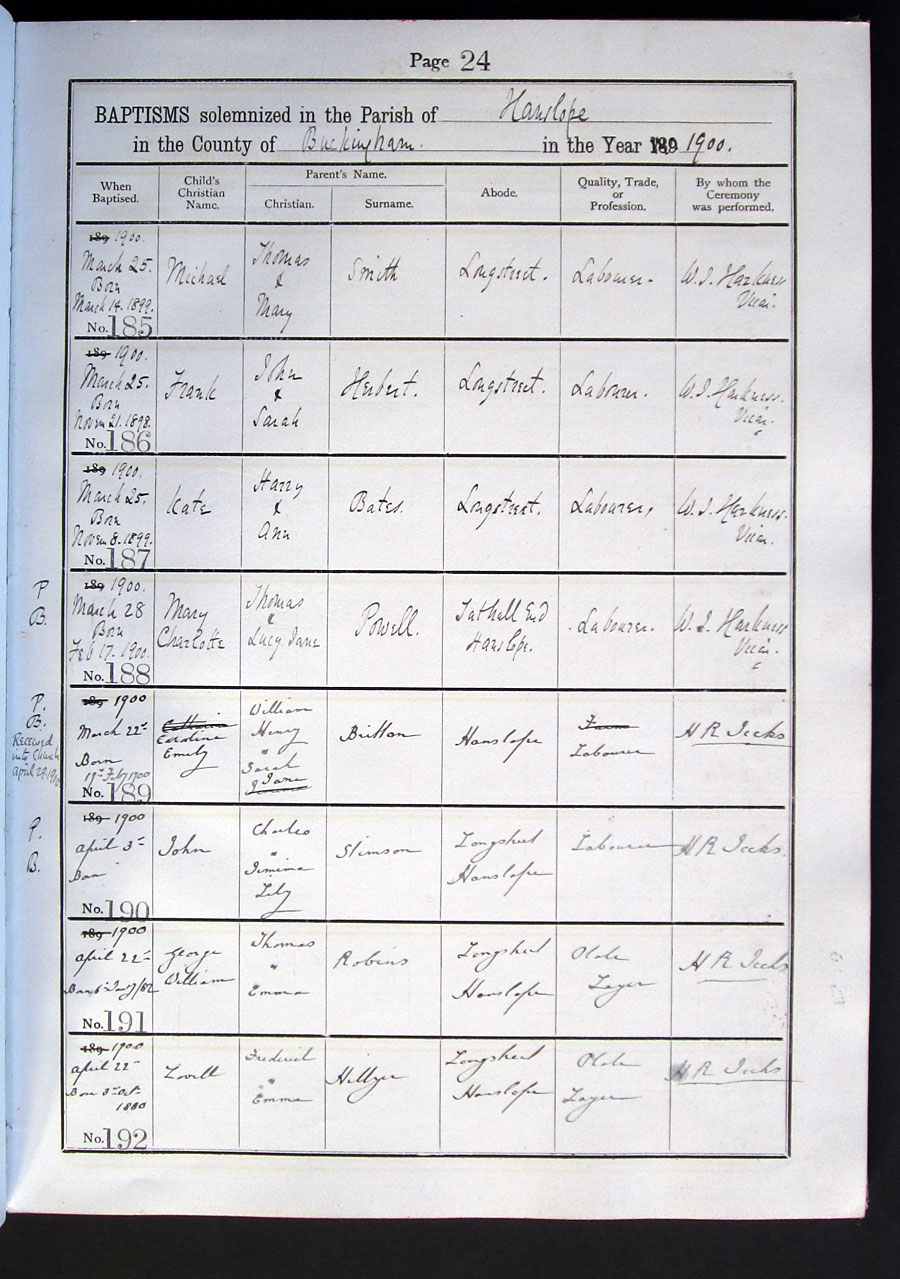 Page 24
BAPTISMS solemnized in the Parish of Hanslope
in the County of Buckingham. in the Year 189 1900.
When Baptised.
Child's Christian Name.
Parent's Name.
Christian.
Surname.
Abode.
Quality, Trade, or Profession.
By whom the Ceremony was performed.
189 1900.
March 25.
Born
March 14. 1899.
No. 185
Michael
Thomas
&
Mary
Smith
Longstreet.
Labourer.
W. J. Harkness
Vicar.
189 1900.
March 25.
Born
Novem 21. 1898.
No. 186
Frank
John
&
Sarah
Herbert.
Longstreet.
Labourer.
W. J. Harkness.
Vicar.
189 1900.
March 25.
Born
Novem 8. 1899.
No. 187
Kate
Harry
&
Ann
Bates.
Longstreet.
Labourer.
W. J. Harkness.
Vicar.
P
B.
189 1900.
March 28
Born
Feb 17. 1900.
No. 188
Mary
Charlotte
Thomas
&
Lucy Jane
Powell.
Tathall End
Hanslope.
Labourer.
W. J. Harkness
Vicar.
P.
B.
Received
into Church
April 29. 1900
189 1900
March 22
Born
17 Feby 1900
No. 189
Caroline
Emily
William
Henry
"
Sarah
& Jane
Britton
Hanslope
Farm
Labourer
H R Jecks
P.
B.
189 1900
April 3
Born
No. 190
John
Charles
"
Jemima
Lily
Stimson
Longstreet
Hanslope
Labourer
H R Jecks.
189 1900
April 22
Born
No. 191
George
William
Thomas
"
Emma
Robins
Longstreet
Hanslope
Plate
Layer
H R Jecks
189 1900
April 22
Born 3 Oct
1880
No. 192
Lovell
Frederick
"
Emma
Hillyer
Longstreet
Hanslope
Plate
Layer
H R Jecks